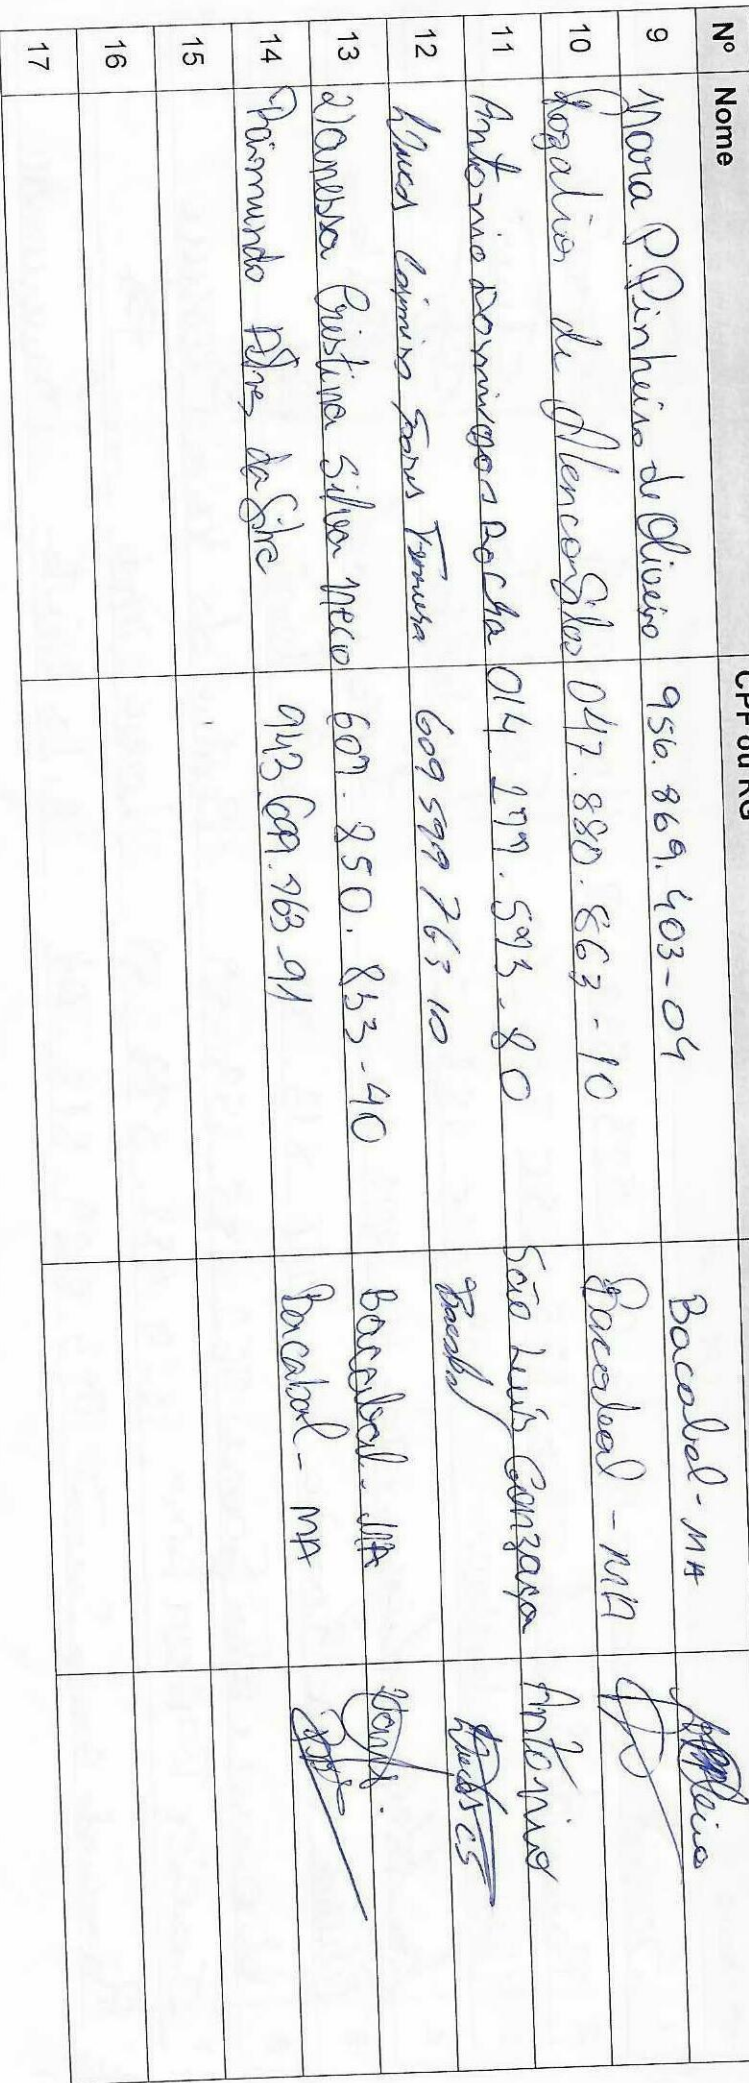 Nº Nome CPF ou RG
9 Mara P. Pinheiro de Oliveira 956.869.403-04 Bacabal - MA
10 de Alencar Silva 047.880.863-10 Bacabal - MA
11 Antonio Domingos Rocha 014.277.593-80 São Luis Gonzaga Antonio
12 609 599 763 10 Bacabal
13 Vanessa Cristina Silva Neco 607.850.833-40 Bacabal - MA
14 Raimundo Alves da Silva 943.699.763-91 Bacabal - MA
15
16
17